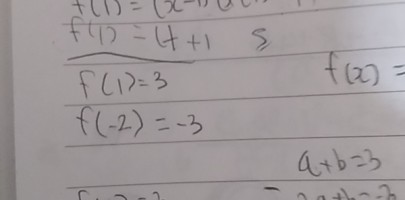 f(1) = (x-1)
f(1) = (4+1 5
f(1)=3 f(x) =
f(-2) = -3
a+b=3